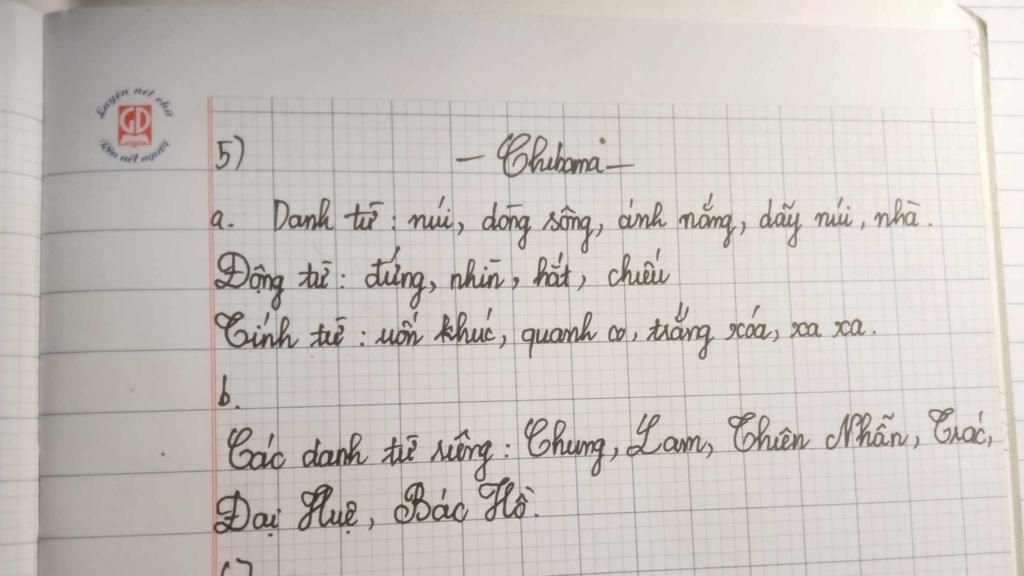 Luyện nét chữ
GD
Rèn nết người
5) – Chubama –
a. Danh từ : núi, dòng sông, ánh nắng, dãy núi, nhà.
Động từ : đứng, nhìn, hắt, chiếu
Tính từ : uốn khúc, quanh co, trắng xóa, xa xa.
b.
Các danh từ riêng : Chung, Lam, Thiên Nhẫn, Trác,
Đại Huệ, Bác Hồ.